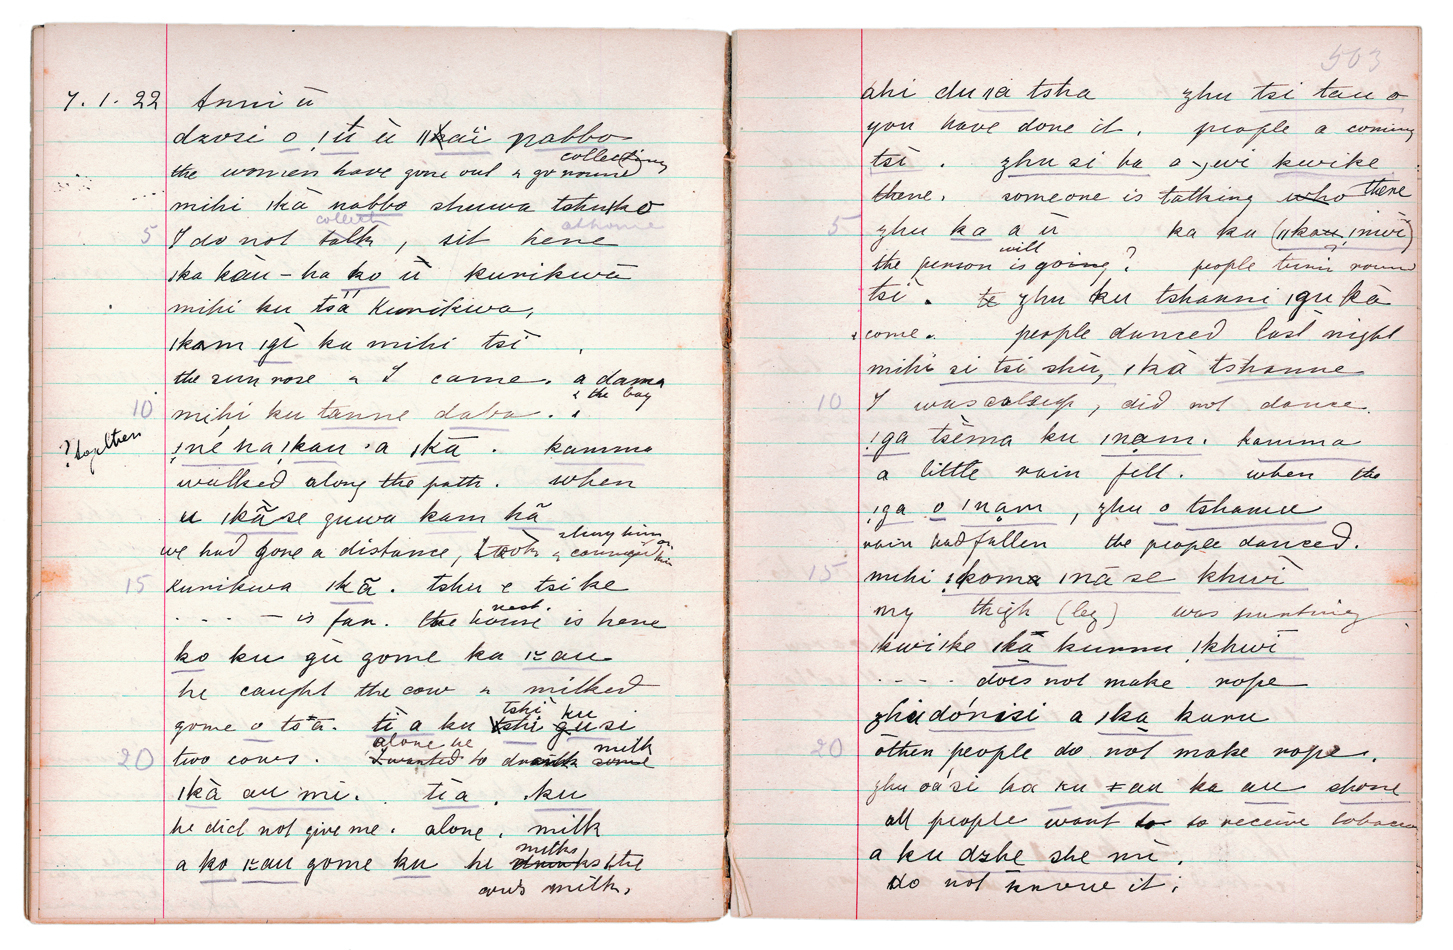 7. 1. 22 Anni ū
dzosi o ǃū ū ǁkaï nabbo
collecting
the women have gone out & go round
mihi ǀkā nabbo shuwa tshuko
collect at home
5 I do not talk, sit here
ǀka kāu – ha ko ū kurikwā
mihi ku tsá kurikwa,
ǀkam ǀgi ka mihi tsī .
the sun rose & I came. a dama
& the boy
10 mihi ku tanne daba .
? together ǃné na ǀkau a ǀkā . kamma
walked along the path. when
u ǀkã se guwa kam hã
we had gone a distance,
15 kurikwa ǀkã . tshu e tsi ke
nest.
. . . – is far. the house is here
ko ku gù gome ka ǀ≍au
he caught the cow & milked
tshi ku
gome o tsā. tì a ku tshi gu si
alone he milk
20 two cows. I wanted to drink some
ǀkà au mi. tì a . ku
he did not give me. alone. milk
a ko ǀ≍au gome ku he drinks the
milks
cows milk.
503
ahi du ǁa tsha zhu tsi tau o
you have done it. people a coming
tsi . zhu si ha a ǀwi kwike
there. someone is talking who there
5 zhu ka a ū ka ku (ǁkau ǀnwi)
will
the person is going? people turn round
tsi . te zhu ku tshanni ǀgu kā
come. people danced last night
mihi si tsi shù, ǀkà tshanne
10 I was asleep, did not dance.
ǃga tsèma ku ǀnam. kamma
a little rain fell. when the
ǃga o ǀnam , zhu o tshanu
rain had fallen the people danced.
15 mihi ǀkoma ǀnā se khwi
my thigh (leg) was hurting
kwike ǀkã kurru ǀkhwi
. . . . does not make rope
zhudórisi a ǀka karu
20 other people do not make rope.
zhu oási ha ku ≠au ka au shore
all people want to to receive tobacco
a ku dzhe she mi .
do not know it;